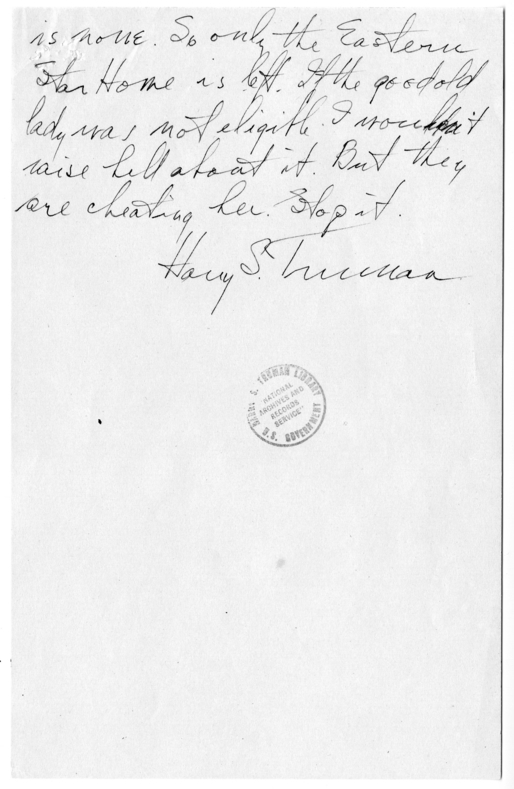 is none. So only the Eastern
Star Home is left. If the good old
lady was not eligible I wouldn't
raise hell about it. But they
are cheating her. Stop it.
Harry S. Truman
HARRY S. TRUMAN LIBRARY
"NATIONAL
ARCHIVES AND
RECORDS
SERVICE"
U.S. GOVERNMENT